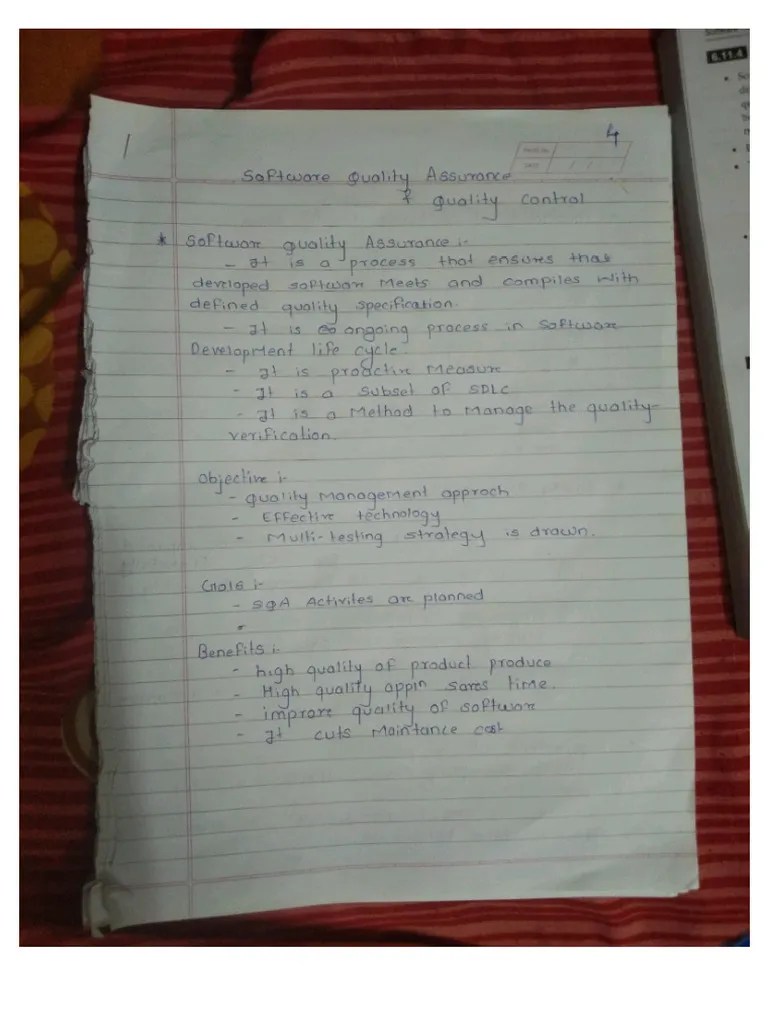 1
4
Software Quality Assurance
& Quality Control
* Software Quality Assurance :-
- It is a process that ensures that
developed software Meets and compiles with
defined quality specification.
- It is ongoing process in Software
Development life cycle.
- It is proactive Measure
- It is a subset of SDLC
- It is a Method to Manage the quality
verification.
Objective :-
- Quality Management approch
- Effective technology
- Multi-testing strategy is drawn.
Goals :-
- SQA Activites are planned
-
Benefits :-
- high quality of product produce
- High quality appln saves time.
- improve quality of software
- It cuts Maintance cost
6.11.4